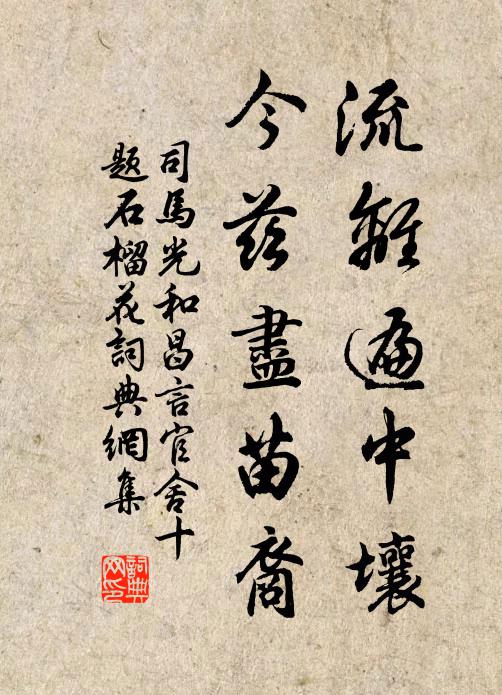 流離遍中壤
今茲盡苗裔
司馬光和昌言官舍十
题石榴花詞典網集
詞典
网印